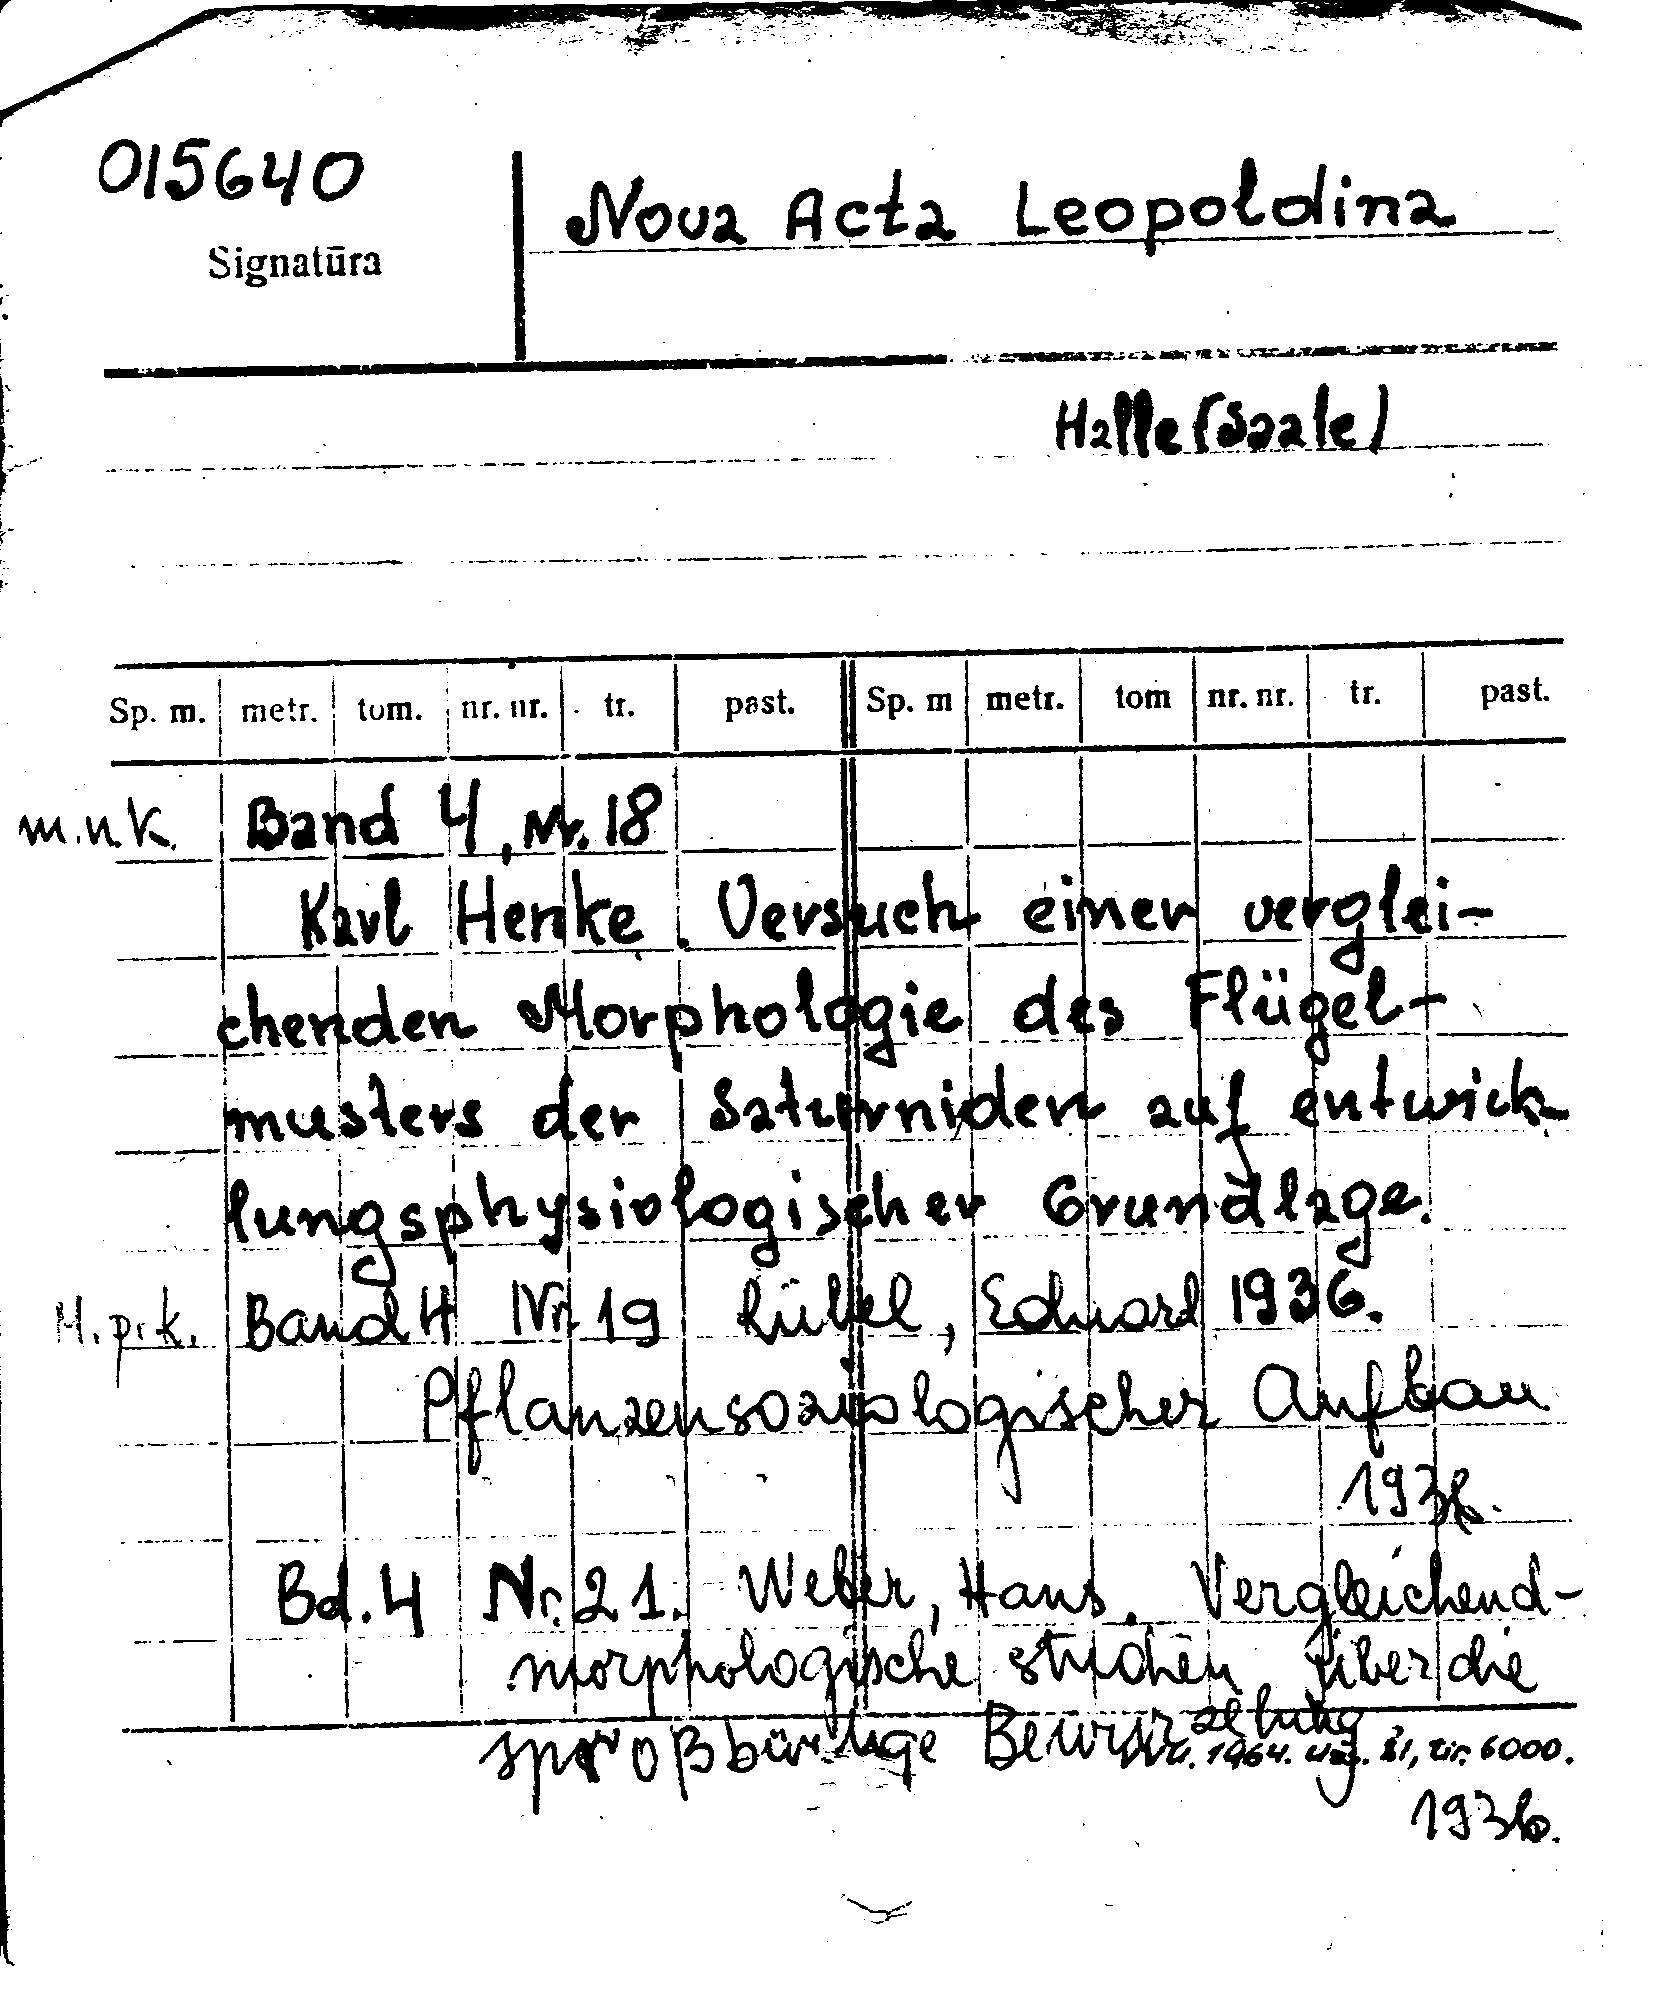 015640
Signatūra
Nova Acta Leopoldina
Halle (Saale)
Sp. m. metr. tom. nr. nr. tr. past. Sp. m metr. tom nr. nr. tr. past.
m.n.k. Band 4, Nr. 18
Karl Henke. Versuch einer verglei-
chenden Morphologie des Flügel-
musters der Saturniden auf entwick-
lungsphysiologischer Grundlage.
1936.
H.p.k. Band 4 Nr. 19 Rübel, Eduard
Pflanzensoziologischer Aufbau
1936.
Bd. 4 Nr. 21. Weber, Hans. Vergleichend-
morphologische Studien über die
sproßbürtige Bewurzelung
1964. 81, tir. 6000.
1936.